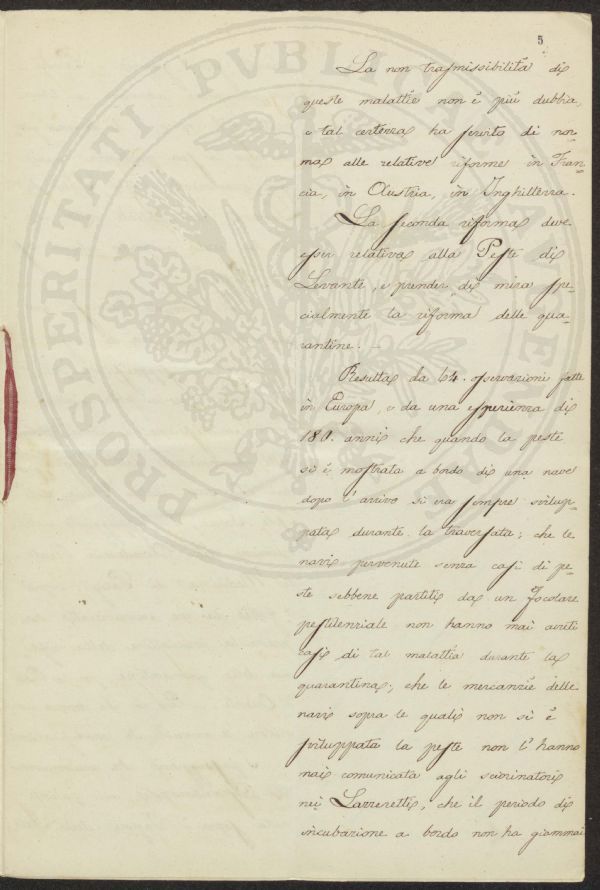 PROSPERITATI PVBLICAE AVGENDAE
5
La non trasmissibilità di
queste malattie non è più dubbia,
e tal certezza ha servito di nor-
ma alle relative riforme in Fran-
cia, in Austria, in Inghilterra.
La seconda riforma deve
esser relativa alla Peste di
Levante, e prender di mira spe-
cialmente la riforma delle qua-
rantine. —
Resulta da 64. osservazioni fatte
in Europa, e da una esperienza di
180. anni che quando la peste
si è mostrata a bordo di una nave
dopo l'arrivo si era sempre svilup-
pata durante la traversata; che le
navi pervenute senza casi di pe-
ste sebbene partiti da un focolare
pestilenziale non hanno mai avuti
casi di tal malattia durante la
quarantina; che le mercanzie delle
navi sopra le quali non si è
sviluppata la peste non l'hanno
mai comunicata agli sciorinatori
nei Lazzeretti, che il periodo di
incubazione a bordo non ha giammai